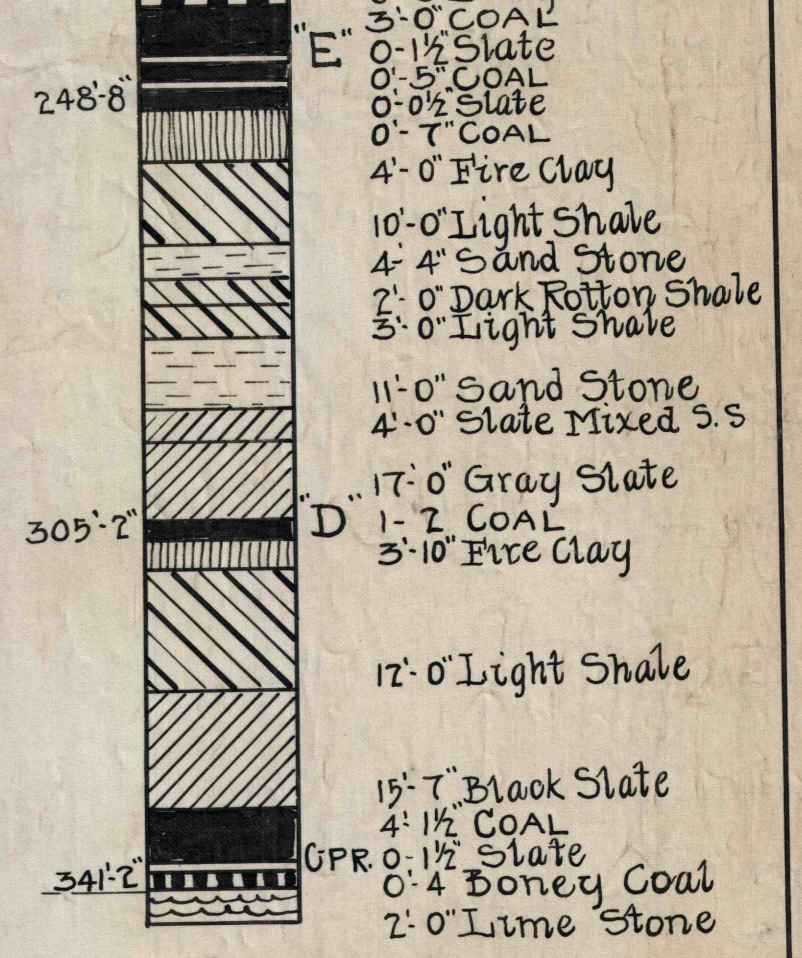 3'-0" COAL
"E"
0-1½" Slate
0'-5" COAL
248'-8"
0-0½" Slate
0'-7" COAL
4'-0" Fire Clay
10'-0" Light Shale
4-4" Sand Stone
2'-0" Dark Rotton Shale
3'-0" Light Shale
11'-0" Sand Stone
4'-0" Slate Mixed S.S
17'-0" Gray Slate
305'-2"
"D"
1-2 COAL
3'-10" Fire Clay
12'-0" Light Shale
15'-7" Black Slate
4'-1½" COAL
C-PR. 0-1½" Slate
341'-2"
0'-4 Boney Coal
2'-0" Lime Stone